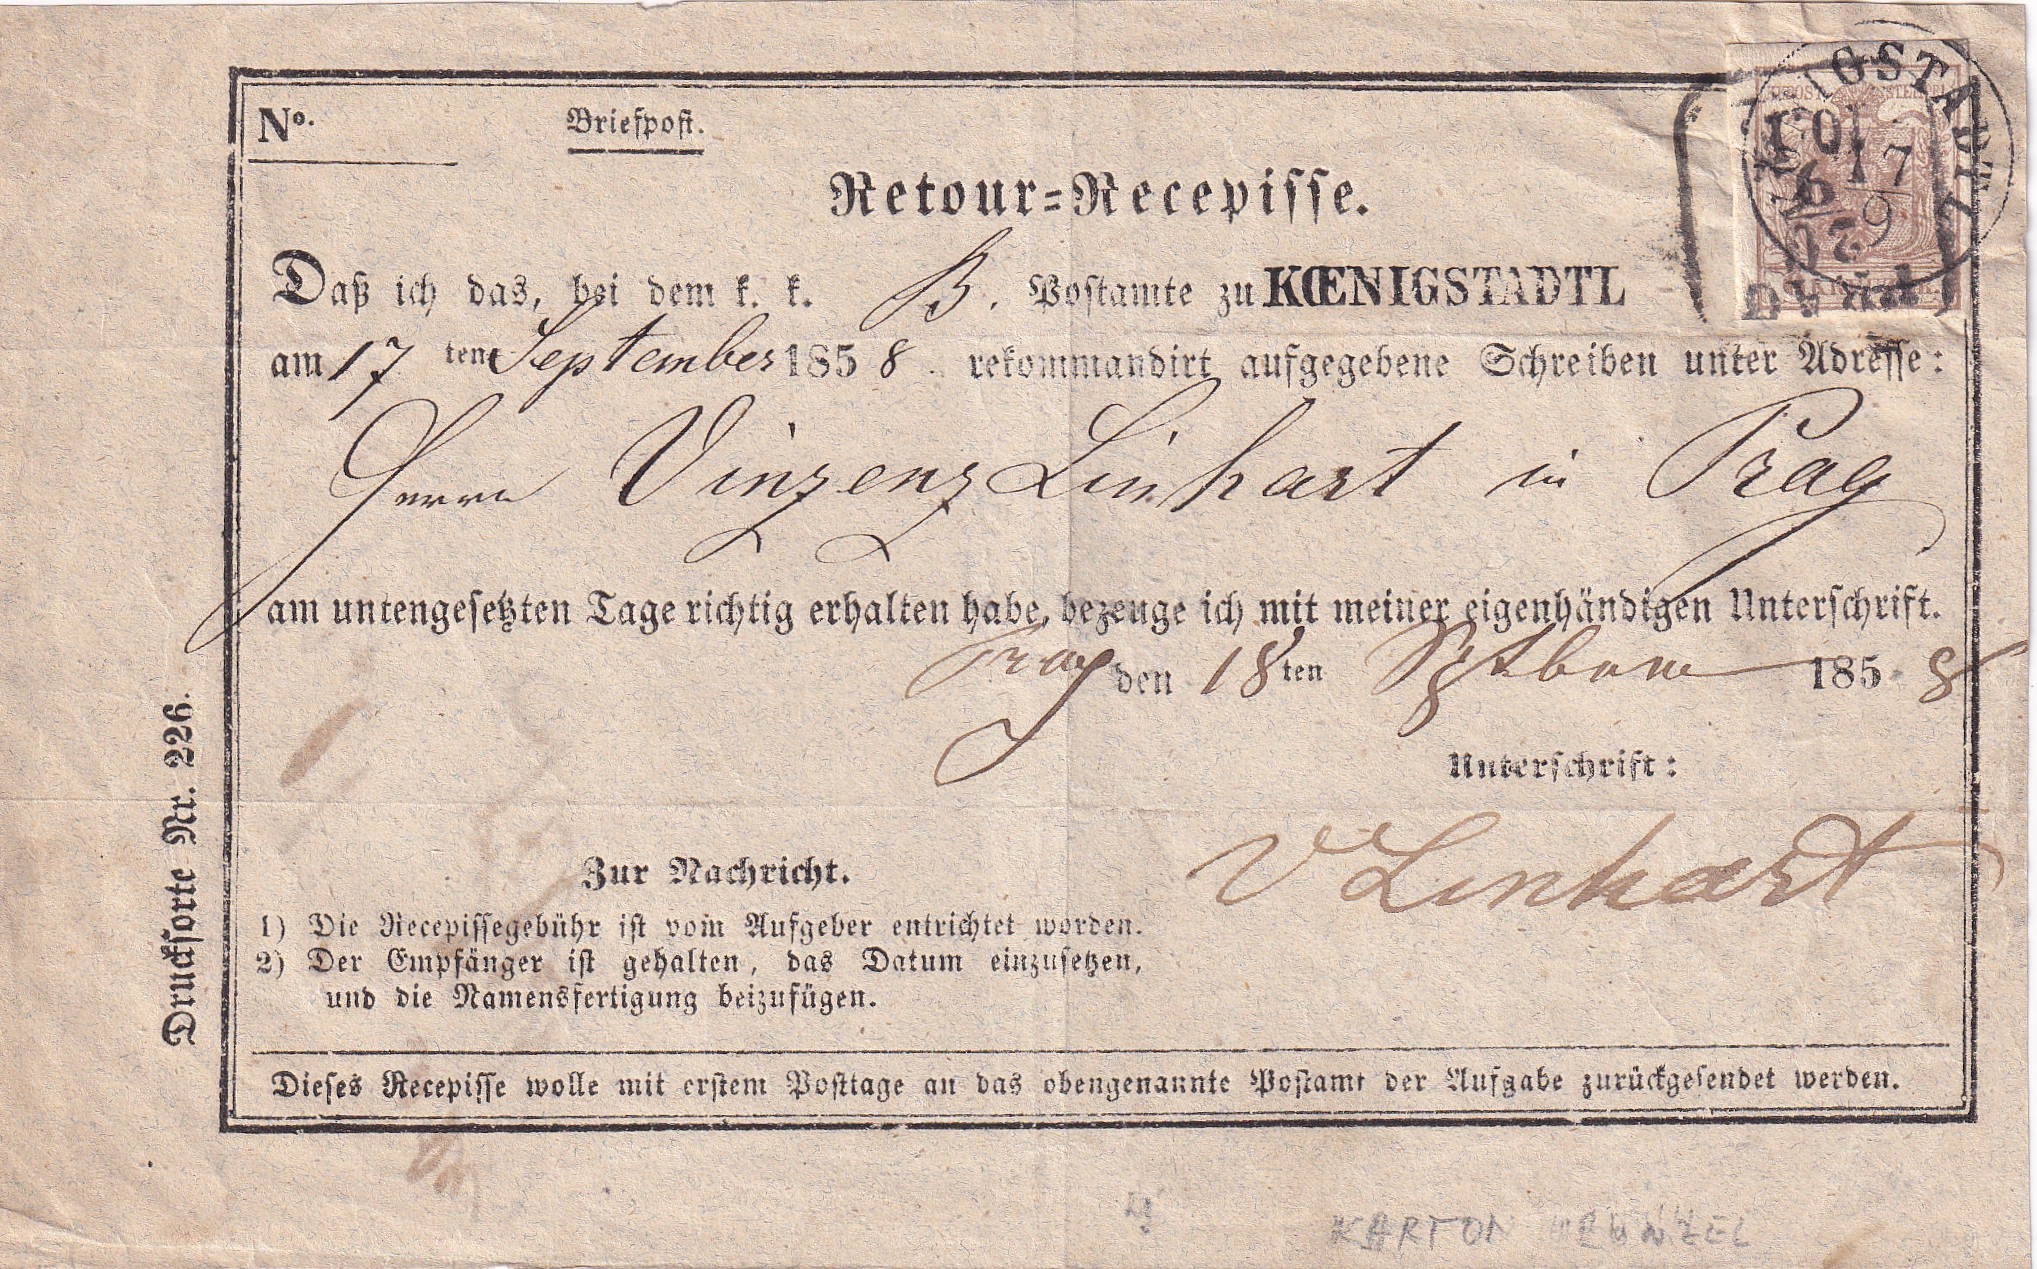 No.
Briefpost.
Retour-Recepisse.
Daß ich das, bei dem k. k. B. Postamte zu KŒNIGSTADTL
am 17 ten September 1858 rekommandirt aufgegebene Schreiben unter Adresse:
Herrn Vinzenz Linhart in Prag
am untengesetzten Tage richtig erhalten habe, bezeuge ich mit meiner eigenhändigen Unterschrift.
Prag den 18ten 1858
Unterschrift:
V Linhart
Zur Nachricht.
1) Die Recepissegebühr ist vom Aufgeber entrichtet worden.
2) Der Empfänger ist gehalten, das Datum einzusetzen,
und die Namensfertigung beizufügen.
Dieses Recepisse wolle mit erstem Posttage an das obengenannte Postamt der Aufgabe zurückgesendet werden.
Drucksorte Nr. 226.
IGSTADTL
17
9
PRAG
KARTON